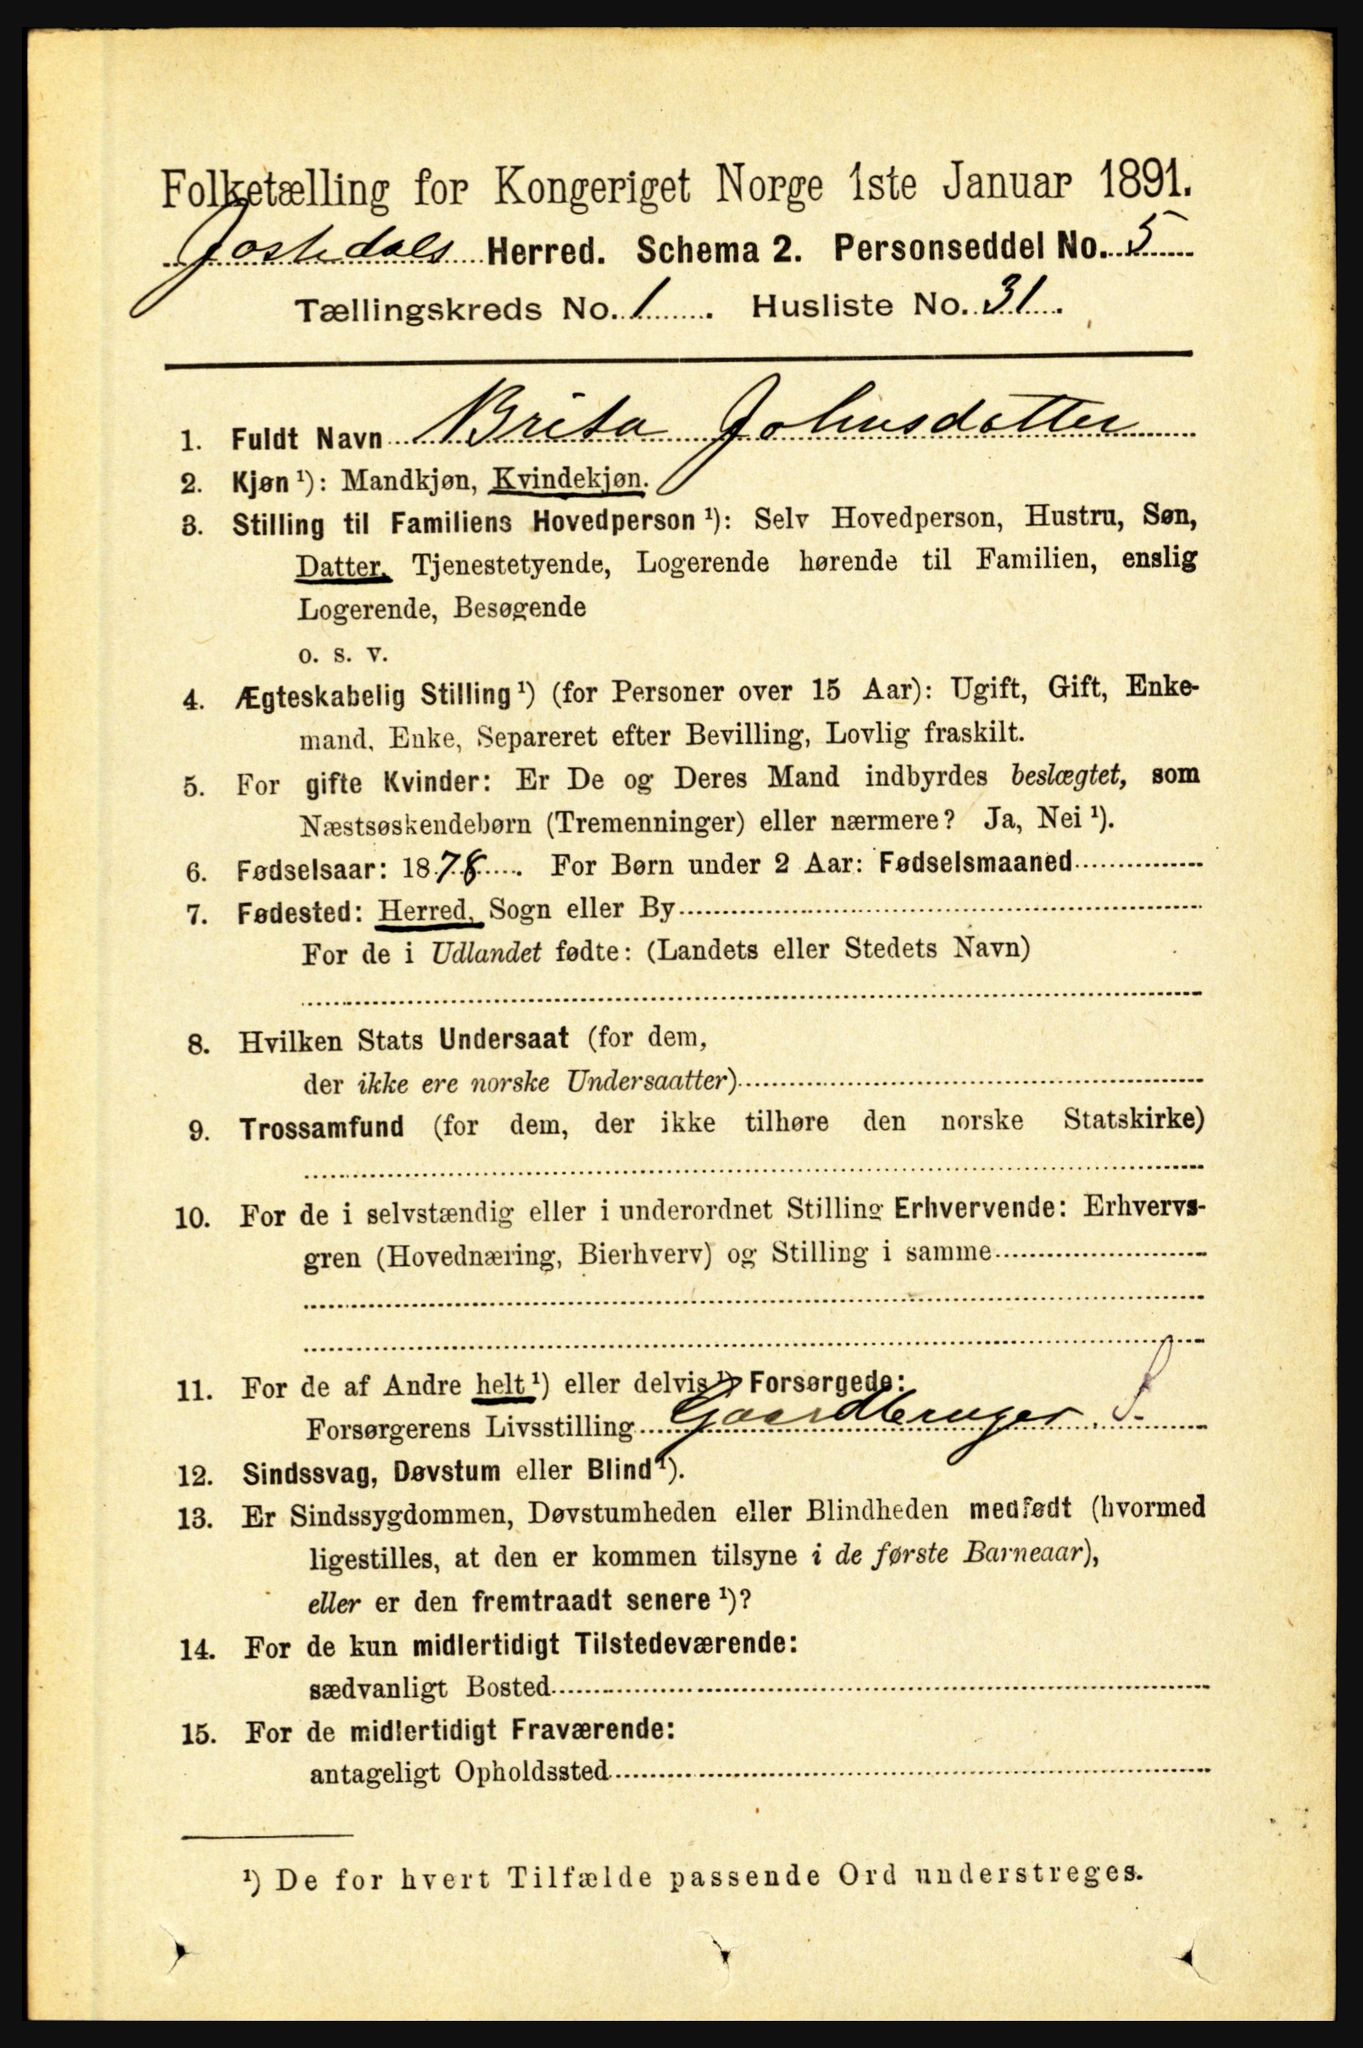 Folketælling for Kongeriget Norge 1ste Januar 1891.
Jostedals Herred. Schema 2. Personseddel No. 5
Tællingskreds No. 1. Husliste No. 31.
1. Fuldt Navn Brita Johnsdatter
2. Kjøn ¹): Mandkjøn, Kvindekjøn.
3. Stilling til Familiens Hovedperson ¹): Selv Hovedperson, Hustru, Søn,
Datter, Tjenestetyende, Logerende hørende til Familien, enslig
Logerende, Besøgende
o. s. v.
4. Ægteskabelig Stilling ¹) (for Personer over 15 Aar): Ugift, Gift, Enke-
mand, Enke, Separeret efter Bevilling, Lovlig fraskilt.
5. For gifte Kvinder: Er De og Deres Mand indbyrdes beslægtet, som
Næstsøskendebørn (Tremenninger) eller nærmere? Ja, Nei ¹).
6. Fødselsaar: 1878. For Børn under 2 Aar: Fødselsmaaned
7. Fødested: Herred, Sogn eller By
For de i Udlandet fødte: (Landets eller Stedets Navn)
8. Hvilken Stats Undersaat (for dem,
der ikke ere norske Undersaatter)
9. Trossamfund (for dem, der ikke tilhøre den norske Statskirke)
10. For de i selvstændig eller i underordnet Stilling Erhvervende: Erhvervs-
gren (Hovednæring, Bierhverv) og Stilling i samme
11. For de af Andre helt ¹) eller delvis ¹) Forsørgede:
Forsørgerens Livsstilling Gaardbruger S.
12. Sindssvag, Døvstum eller Blind ¹).
13. Er Sindssygdommen, Døvstumheden eller Blindheden medfødt (hvormed
ligestilles, at den er kommen tilsyne i de første Barneaar),
eller er den fremtraadt senere ¹)?
14. For de kun midlertidigt Tilstedeværende:
sædvanligt Bosted
15. For de midlertidigt Fraværende:
antageligt Opholdssted
¹) De for hvert Tilfælde passende Ord understreges.